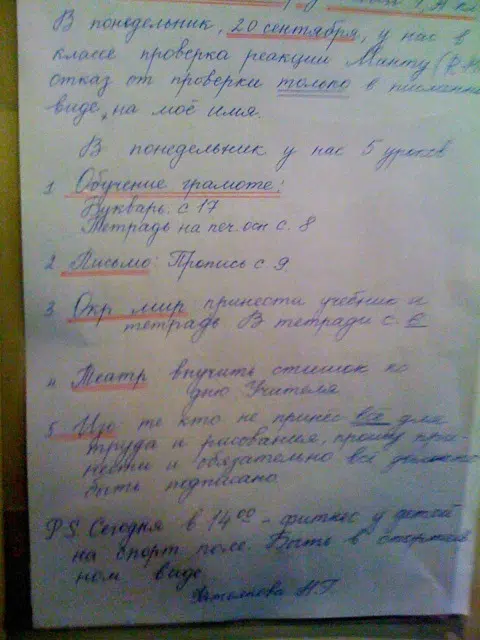 1 "А" кл
В понедельник, 20 сентября, у нас в
классе проверка реакции Манту (р.М
отказ от проверки только в письменн
виде, на моё имя.
В понедельник у нас 5 уроков
1 Обучение грамоте:
Букварь: с 17
Тетрадь на печ. осн с. 8
2 Письмо: Пропись с 9
3 Окр мир принести учебник и
тетрадь В тетради с. 6
4 Театр выучить стишок ко
дню Учителя
5. Изо те кто не принёс все для
труда и рисования, прошу при-
нести и обязательно всё должно
быть подписано
PS. Сегодня в 14 00 - фитнес у детей
на спорт поле. Быть в спортив
ном виде
Н.Г.